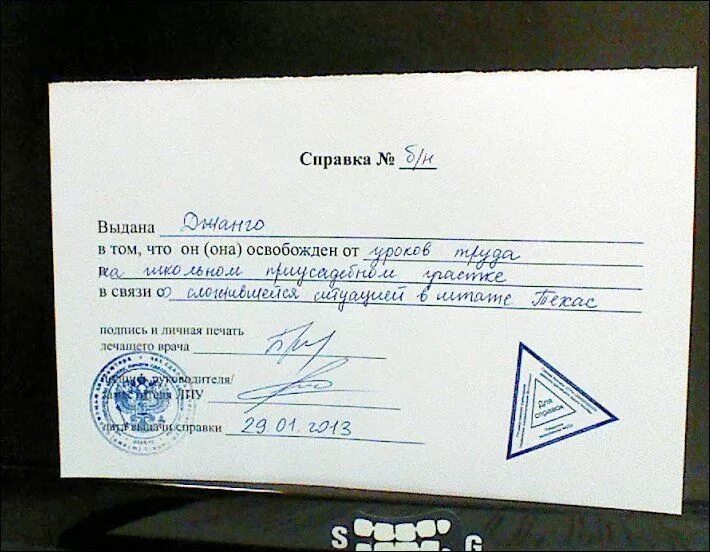 Справка № б/н
Выдана Джанго
в том, что он (она) освобожден от уроков труда
на школьном приусадебном участке
в связи со сложившейся ситуацией в штате Техас
подпись и личная печать
лечащего врача
подпись руководителя/
заместителя ЛПУ
дата выдачи справки 29.01.2013
Для
справок
S G